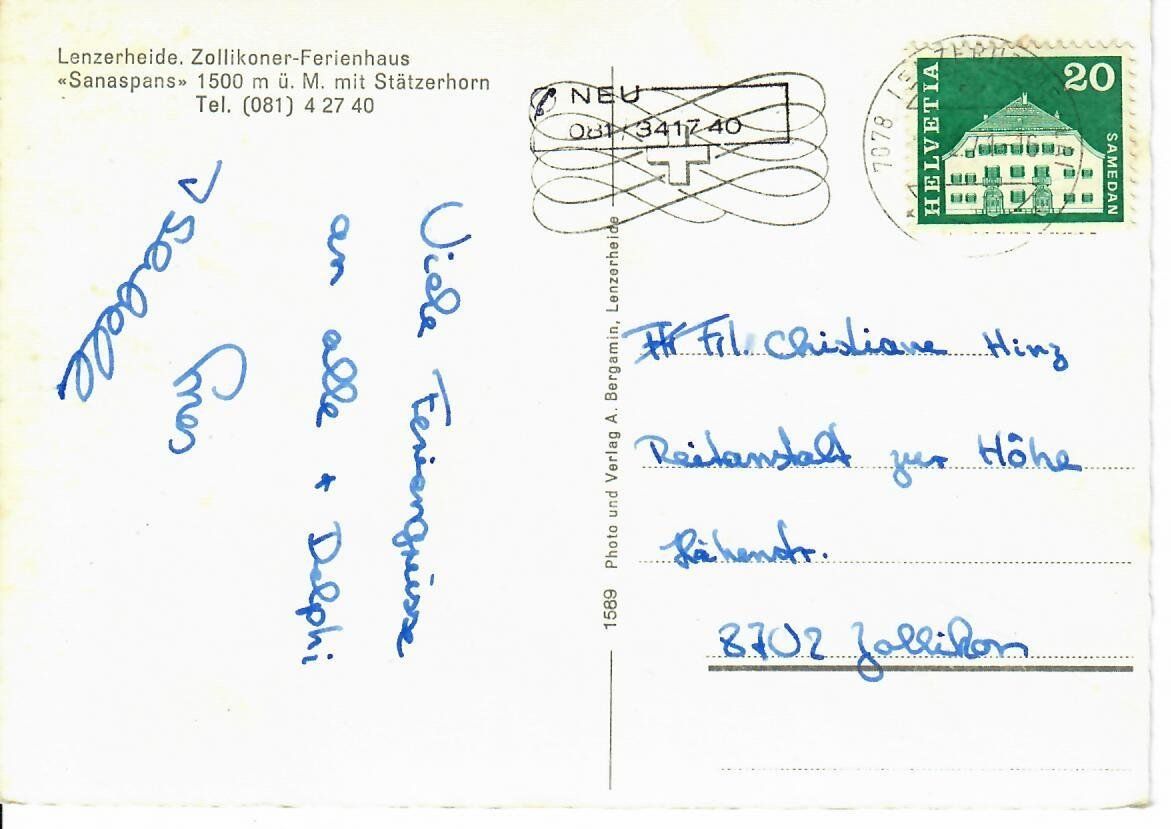 Lenzerheide. Zollikoner-Ferienhaus
«Sanaspans» 1500 m ü. M. mit Stätzerhorn
Tel. (081) 4 27 40
NEU
081 / 34 17 40
7078 LENZERHEIDE
HELVETIA
20
SAMEDAN
Viele Feriengrüsse
an alle + Delphi
1589 Photo und Verlag A. Bergamin, Lenzerheide
Frl. Chistiane Hinz
Reitanstalt zur Höhe
Höhenstr.
8702 Zollikon